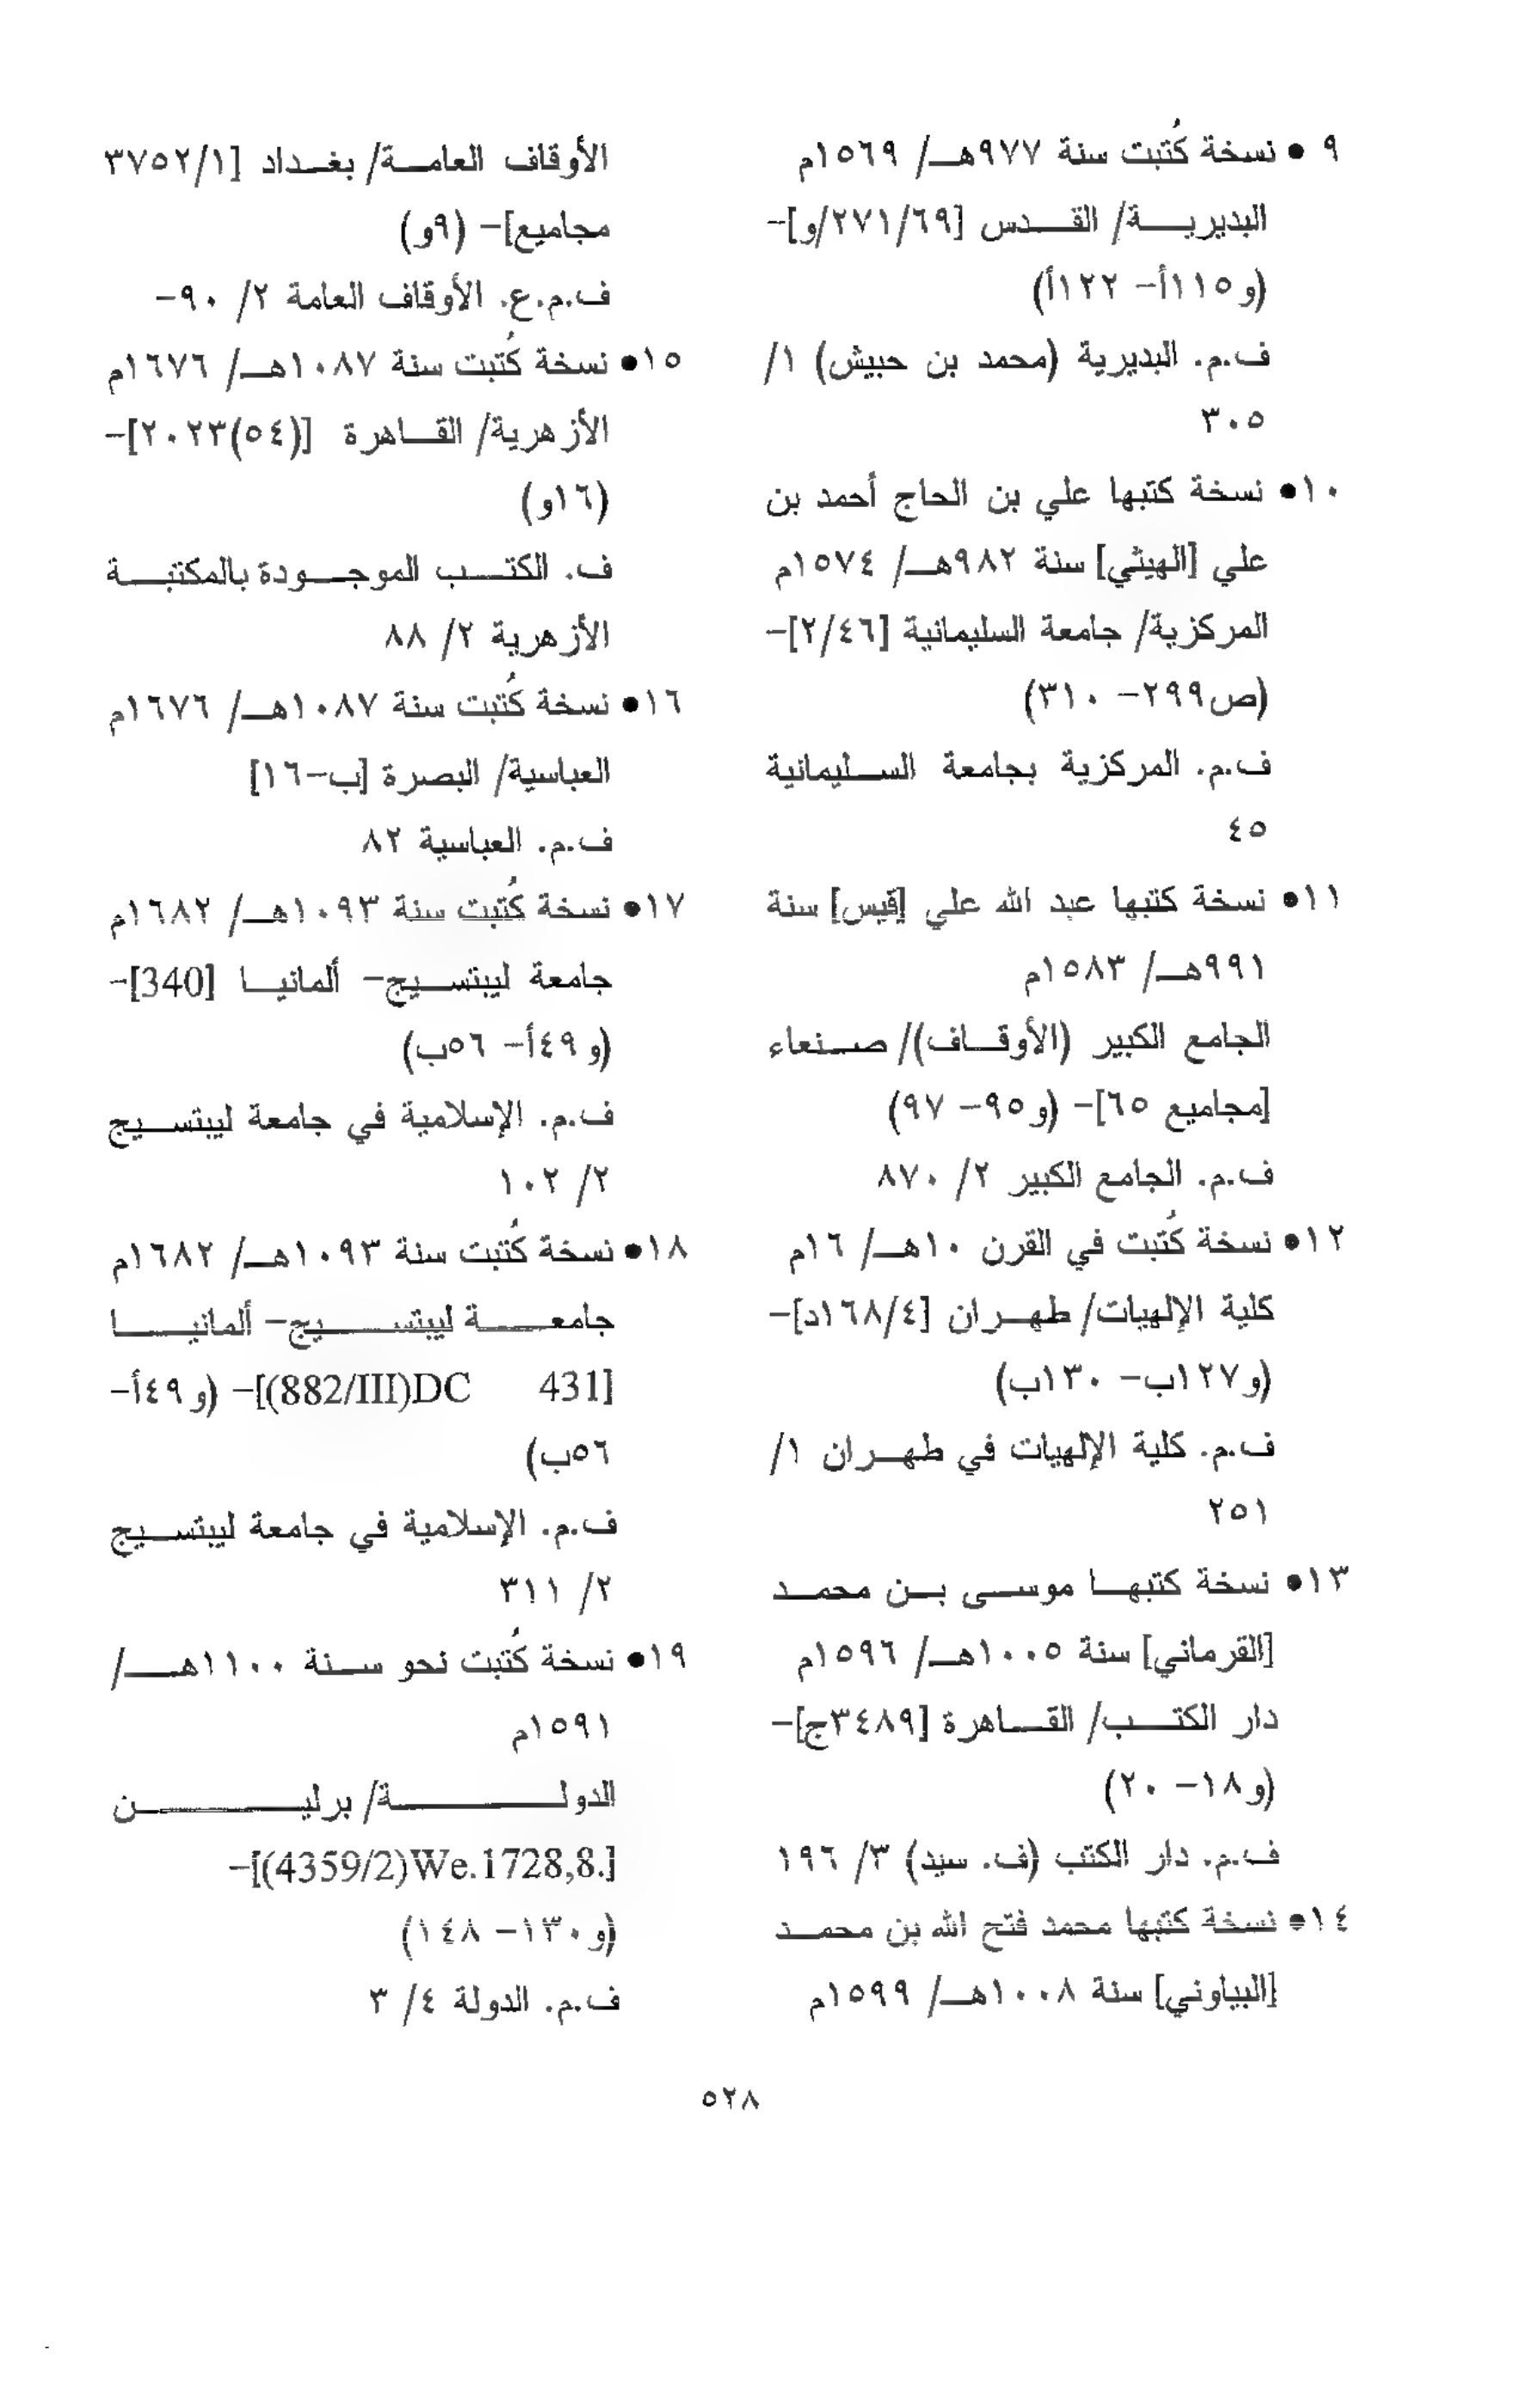 ٩ • نسخة كُتبت سنة ٩٧٧هـ/ ١٥٦٩م
البديرية/ القدس [٢٧١/٦٩/و]-
(و١١٥أ- ١٢٢أ)
ف.م. البديرية (محمد بن حبيش) ١/
٣٠٥
١٠• نسخة كتبها علي بن الحاج أحمد بن
علي [الهيثي] سنة ٩٨٢هـ/ ١٥٧٤م
المركزية/ جامعة السليمانية [٢/٤٦]-
(ص٢٩٩- ٣١٠)
ف.م. المركزية بجامعة السليمانية
٤٥
١١• نسخة كتبها عبد الله علي [قيس] سنة
٩٩١هـ/ ١٥٨٣م
الجامع الكبير (الأوقاف)/ صنعاء
[مجاميع ٦٥]- (و٩٥- ٩٧)
ف.م. الجامع الكبير ٢/ ٨٧٠
١٢• نسخة كُتبت في القرن ١٠هـ/ ١٦م
كلية الإلهيات/ طهران [١٦٨/٤د]-
(و١٢٧ب- ١٣٠ب)
ف.م. كلية الإلهيات في طهران ١/
٢٥١
١٣• نسخة كتبها موسى بن محمد
[القرماني] سنة ١٠٠٥هـ/ ١٥٩٦م
دار الكتب/ القاهرة [٣٤٨٩ج]-
(و١٨- ٢٠)
ف.م. دار الكتب (ف. سيد) ٣/ ١٩٦
١٤• نسخة كتبها محمد فتح الله بن محمد
[البياوني] سنة ١٠٠٨هـ/ ١٥٩٩م
الأوقاف العامة/ بغداد [٣٧٥٢/١
مجاميع]- (٩و)
ف.م.ع. الأوقاف العامة ٢/ ٩٠-
١٥• نسخة كُتبت سنة ١٠٨٧هـ/ ١٦٧٦م
الأزهرية/ القاهرة [(٥٤)٢٠٢٣]-
(١٦و)
ف. الكتب الموجودة بالمكتبة
الأزهرية ٢/ ٨٨
١٦• نسخة كُتبت سنة ١٠٨٧هـ/ ١٦٧٦م
العباسية/ البصرة [ب-١٦]
ف.م. العباسية ٨٢
١٧• نسخة كُتبت سنة ١٠٩٣هـ/ ١٦٨٢م
جامعة ليبتسيج- ألمانيا [340]-
(و٤٩أ- ٥٦ب)
ف.م. الإسلامية في جامعة ليبتسيج
٢/ ١٠٢
١٨• نسخة كُتبت سنة ١٠٩٣هـ/ ١٦٨٢م
جامعة ليبتسيج- ألمانيا
[(882/III)DC 431]- (و٤٩أ-
٥٦ب)
ف.م. الإسلامية في جامعة ليبتسيج
٢/ ٣١١
١٩• نسخة كُتبت نحو سنة ١١٠٠هـ/
١٥٩١م
الدولة/ برلين
[(4359/2)We.1728,8.]-
(و١٣٠- ١٤٨)
ف.م. الدولة ٤/ ٣
٥٢٨